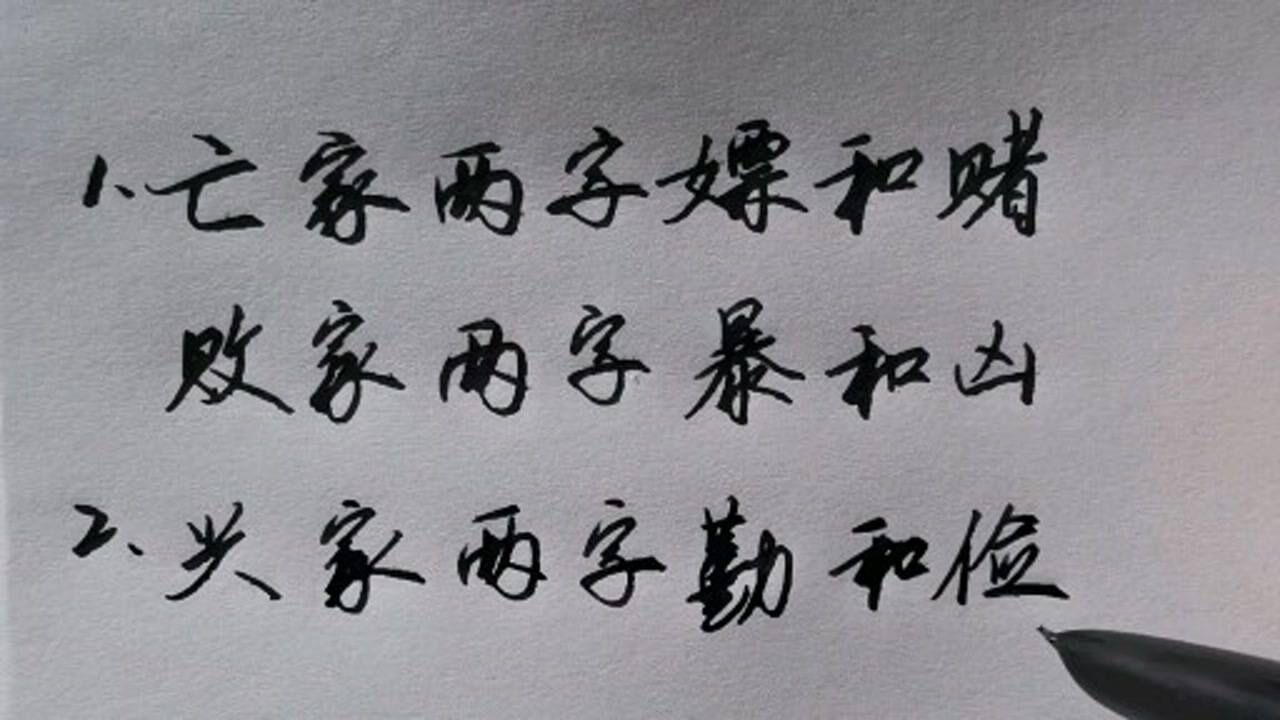 1、亡家两字嫖和赌
败家两字暴和凶
2、兴家两字勤和俭